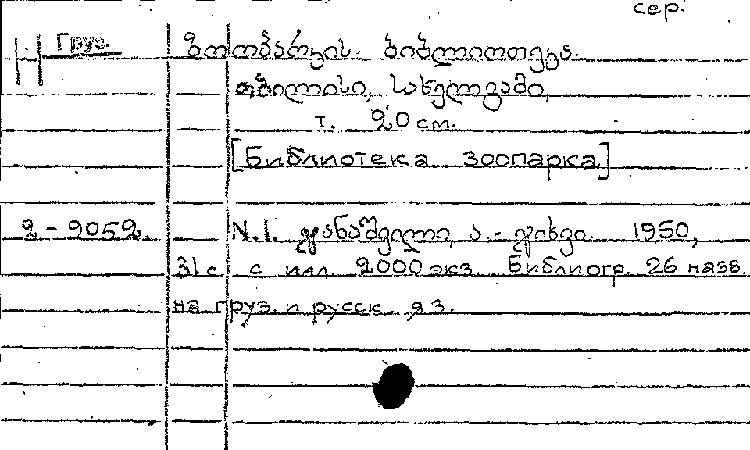 сер.
Груз. ზოოპარკის ბიბლიოთეკა.
თბილისი, სახელგამი,
т. 20 см.
[Библиотека зоопарка]
2-2052. N.1. ჯანაშვილი, ა.- ჯიხვი. 1950,
31 с. с илл. 2000 экз. Библиогр. 26 назв.
на груз. и русск. яз.